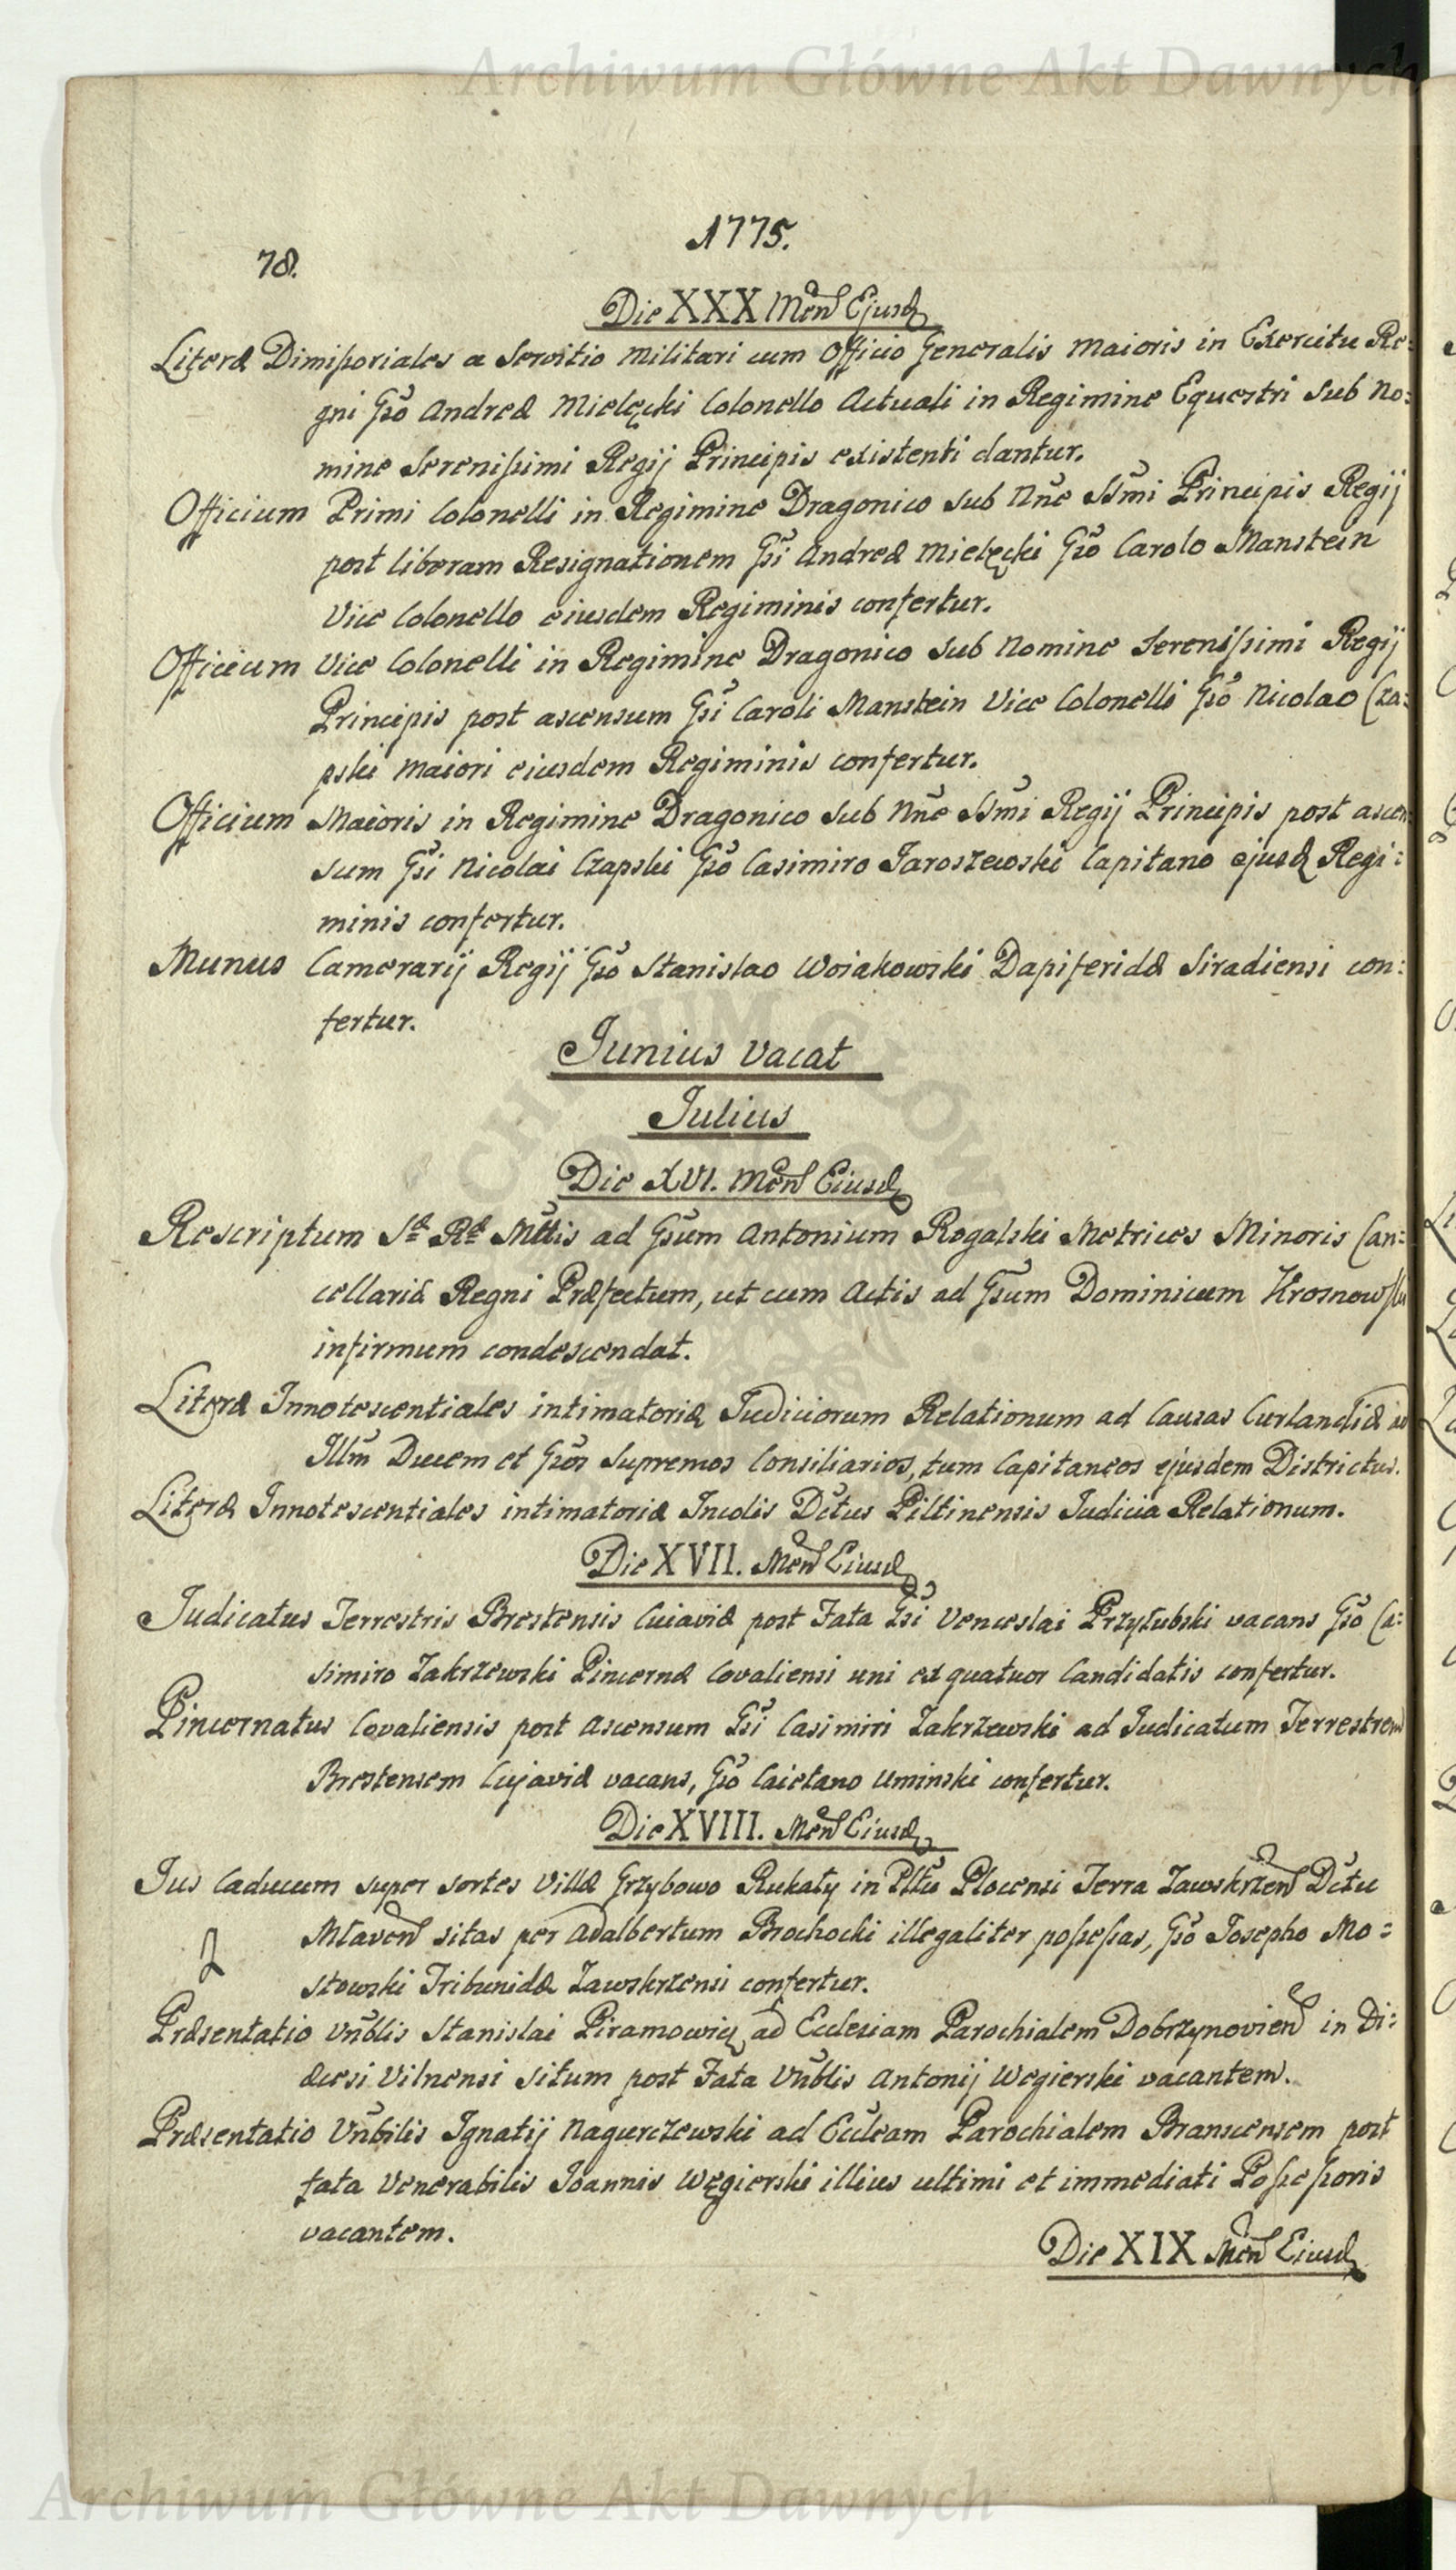 Archiwum Główne Akt Dawnych
1775.
78.
Die XXX Men̄ Ejusd
Literæ Dimissoriales a Servitio Militari cum Officio Generalis Maioris in Exercitu Re=
gni Gso Andreæ Mielęcki Colonello Actuali in Regimine Equestri sub No=
mine Serenissimi Regij Principis existenti dantur.
Officium Primi Colonelli in Regimine Dragonico sub Nn̄e SSmi Principis Regij
post liberam Resignationem Gsi Andreæ Mielęcki Gso Carolo Manstein
Vice Colonello eiusdem Regiminis confertur.
Officium Vice Colonelli in Regimine Dragonico sub Nomine Serenissimi Regij
Principis post ascensum Gsi Caroli Manstein Vice Colonelli Gso Nicolao Cza=
pski Maiori eiusdem Regiminis confertur.
Officium Maioris in Regimine Dragonico sub Nn̄e SSmi Regij Principis post ascen
sum Gsi Nicolai Czapski Gso Casimiro Jaroszewski Capitano ejusd Regi=
minis confertur.
Munus Camerarij Regij Gso Stanislao Woiakowski Dapiferidæ Siradiensi con=
fertur.
Junius vacat
Julius
Die XVI. Men̄ Eiusd
Rescriptum Sæ Ræ Mttis ad Gsum Antonium Rogalski Metrices Minoris Can=
cellariæ Regni Præfectum, ut cum Actis ad Gsum Dominicum Krosnowski
infirmum condescendat.
Literæ Innotescentiales intimatoriæ Judiciorum Relationum ad Causas Curlandiæ ad
Illm̄ Ducem et Gsos Supremos Consiliarios, tum Capitaneos ejusdem Districtus.
Literæ Innotescentiales intimatoriæ Incolis Dctus Piltinensis Judicia Relationum.
Die XVII. Men̄ Eiusd
Judicatus Terrestris Brestensis Cuiaviæ post Fata Gsi Venceslai Przyłubski vacans Gso Ca=
simiro Zakrzewski Pincernæ Covaliensi uni ex quatuor Candidatis confertur.
Pincernatus Covaliensis post Ascensum Gsi Casimiri Zakrzewski ad Judicatum Terrestrem
Brestensem Cujaviæ vacans, Gso Caietano Uminski confertur.
Die XVIII. Men̄ Eiusd
Jus Caducum super sortes Villæ Grzybowo Rukaty in Plttu Plocensi Terra Zawskrzen̄ Dctu
Mlaven̄ sitas per Adalbertum Brochocki illegaliter possessas, Gso Josepho Mo=
stowski Tribunidæ Zawskrzensi confertur.
Præsentatio Vn̄blis Stanislai Piramowicz ad Ecclesiam Parochialem Dobrzynovien̄ in Di=
æcesi Vilnensi situm post Fata Vn̄blis Antonij Wegierski vacantem.
Præsentatio Vn̄bilis Ignatij Nagurczewski ad Eccleam Parochialem Branscensem post
fata Venerabilis Joannis Węgierski illius ultimi et immediati Possessoris
vacantem.
Die XIX Men̄ Eiusd
Archiwum Główne Akt Dawnych